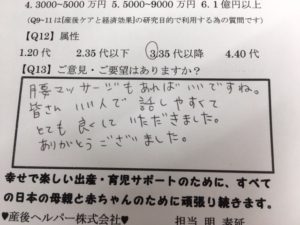 4. 3000~5000万円 5. 5000~9000万円 6. 1億円以上
(Q9~11は【産後ケアと経済効果】の研究目的で利用する為の質問です)
【Q12】属性
1.20代 2.35代以下 3.35代以降 4.40代
【Q13】ご意見・ご要望はありますか?
腰マッサージもあればいいですね。
皆さん いい人で 話しやすくて
とても 良くして いただきました。
ありがとうございました。
幸せで楽しい出産・育児サポートのために、すべて
の日本の母親と赤ちゃんのために頑張り続きます。
♥産後ヘルパー株式会社♥ 担当 明 素延